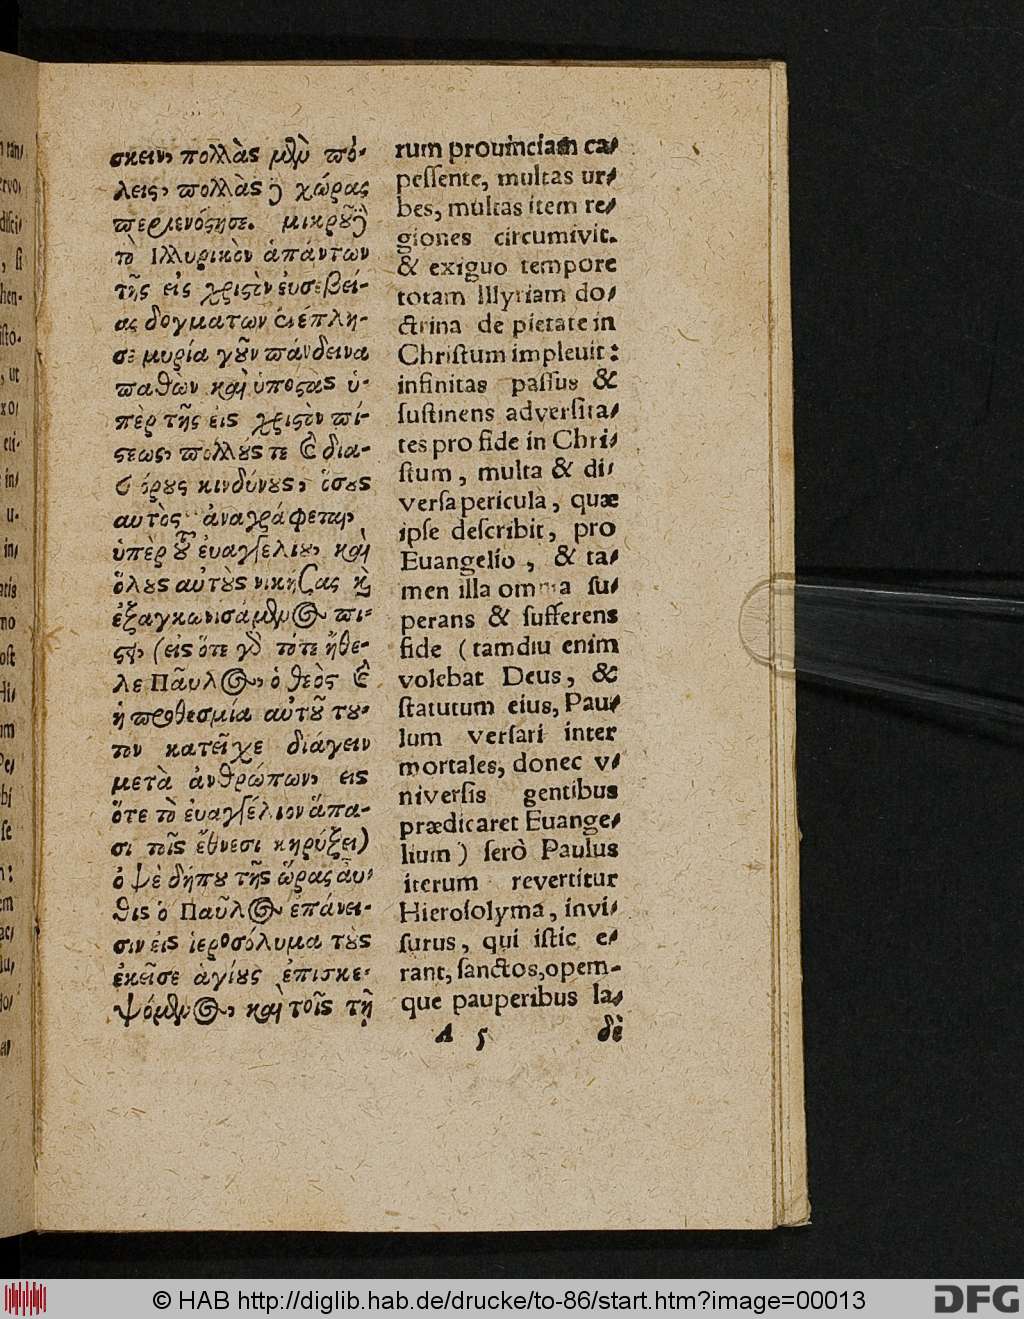 σκειν, πολλὰς μὲν πό-
λεις, πολλὰς ἢ χώρας
περιενόςησε. μικροῦ ἢ
τὸ Ιλλυρικὸν ἁπάντων
τῆς εἰς χριςὶν ἐυσεβεί-
ας δογμάτων ἐπλη-
σε μυρία γοῦν πάνδεινα
παθὼν καὶ ὑποςὰς ὑ-
πὲρ τῆς εἰς χριςὶν πί-
ςεως, πολλούς τε καὶ δια-
κινδύνους, ὅσους
αυτὸς ἀναγράφεται,
ὑπὲρ τοῦ ἐυαγγελίου, καὶ
ὅλους αὐτοὺς νικήσας καὶ
ἐξαγκωνισάμενος πί-
ςει (εἰς ὅτε γὸ τότε ἤθε-
λε Παῦλος, ὁ θεὸς καὶ
ἡ προθεσμία αὐτοῦ του-
τον κατεῖχε διάγειν
μετὰ ἀνθρώπων, εις
ὅτε τὸ ἐυαγγέλιον ἅπα-
σι τοῖς ἔθνεσι κηρύξει)
ὀψὲ δήπου τῆς ὥρας ἀυ-
θις ὁ Παῦλος ἐπάνει-
σιν ἐις ἱεροσόλυμα τοὺς
ἐκεῖσε ἁγίους ἐπισκε-
ψόμενος, καὶ τοῖς τῇ
rum prouinciam ca-
peſſente, multas ur-
bes, multas item re-
giones circumivit.
& exiguo tempore
totam Illyriam do-
ctrina de pietate in
Chriſtum impleuit:
infinitas paſſus &
ſuſtinens adverſita-
tes pro fide in Chri-
ſtum, multa & di-
verſa pericula, quæ
ipſe deſcribit, pro
Euangelio, & ta-
men illa omnia ſu-
perans & ſufferens
fide (tamdiu enim
volebat Deus, &
ſtatutum eius, Pau-
lum verſari inter
mortales, donec v-
niverſis gentibus
prædicaret Euange-
lium) ſerò Paulus
iterum revertitur
Hieroſolyma, invi-
ſurus, qui iſtic e-
rant, ſanctos, opem-
que pauperibus la-
A 5 dè
© HAB http://diglib.hab.de/drucke/to-86/start.htm?image=00013
DFG